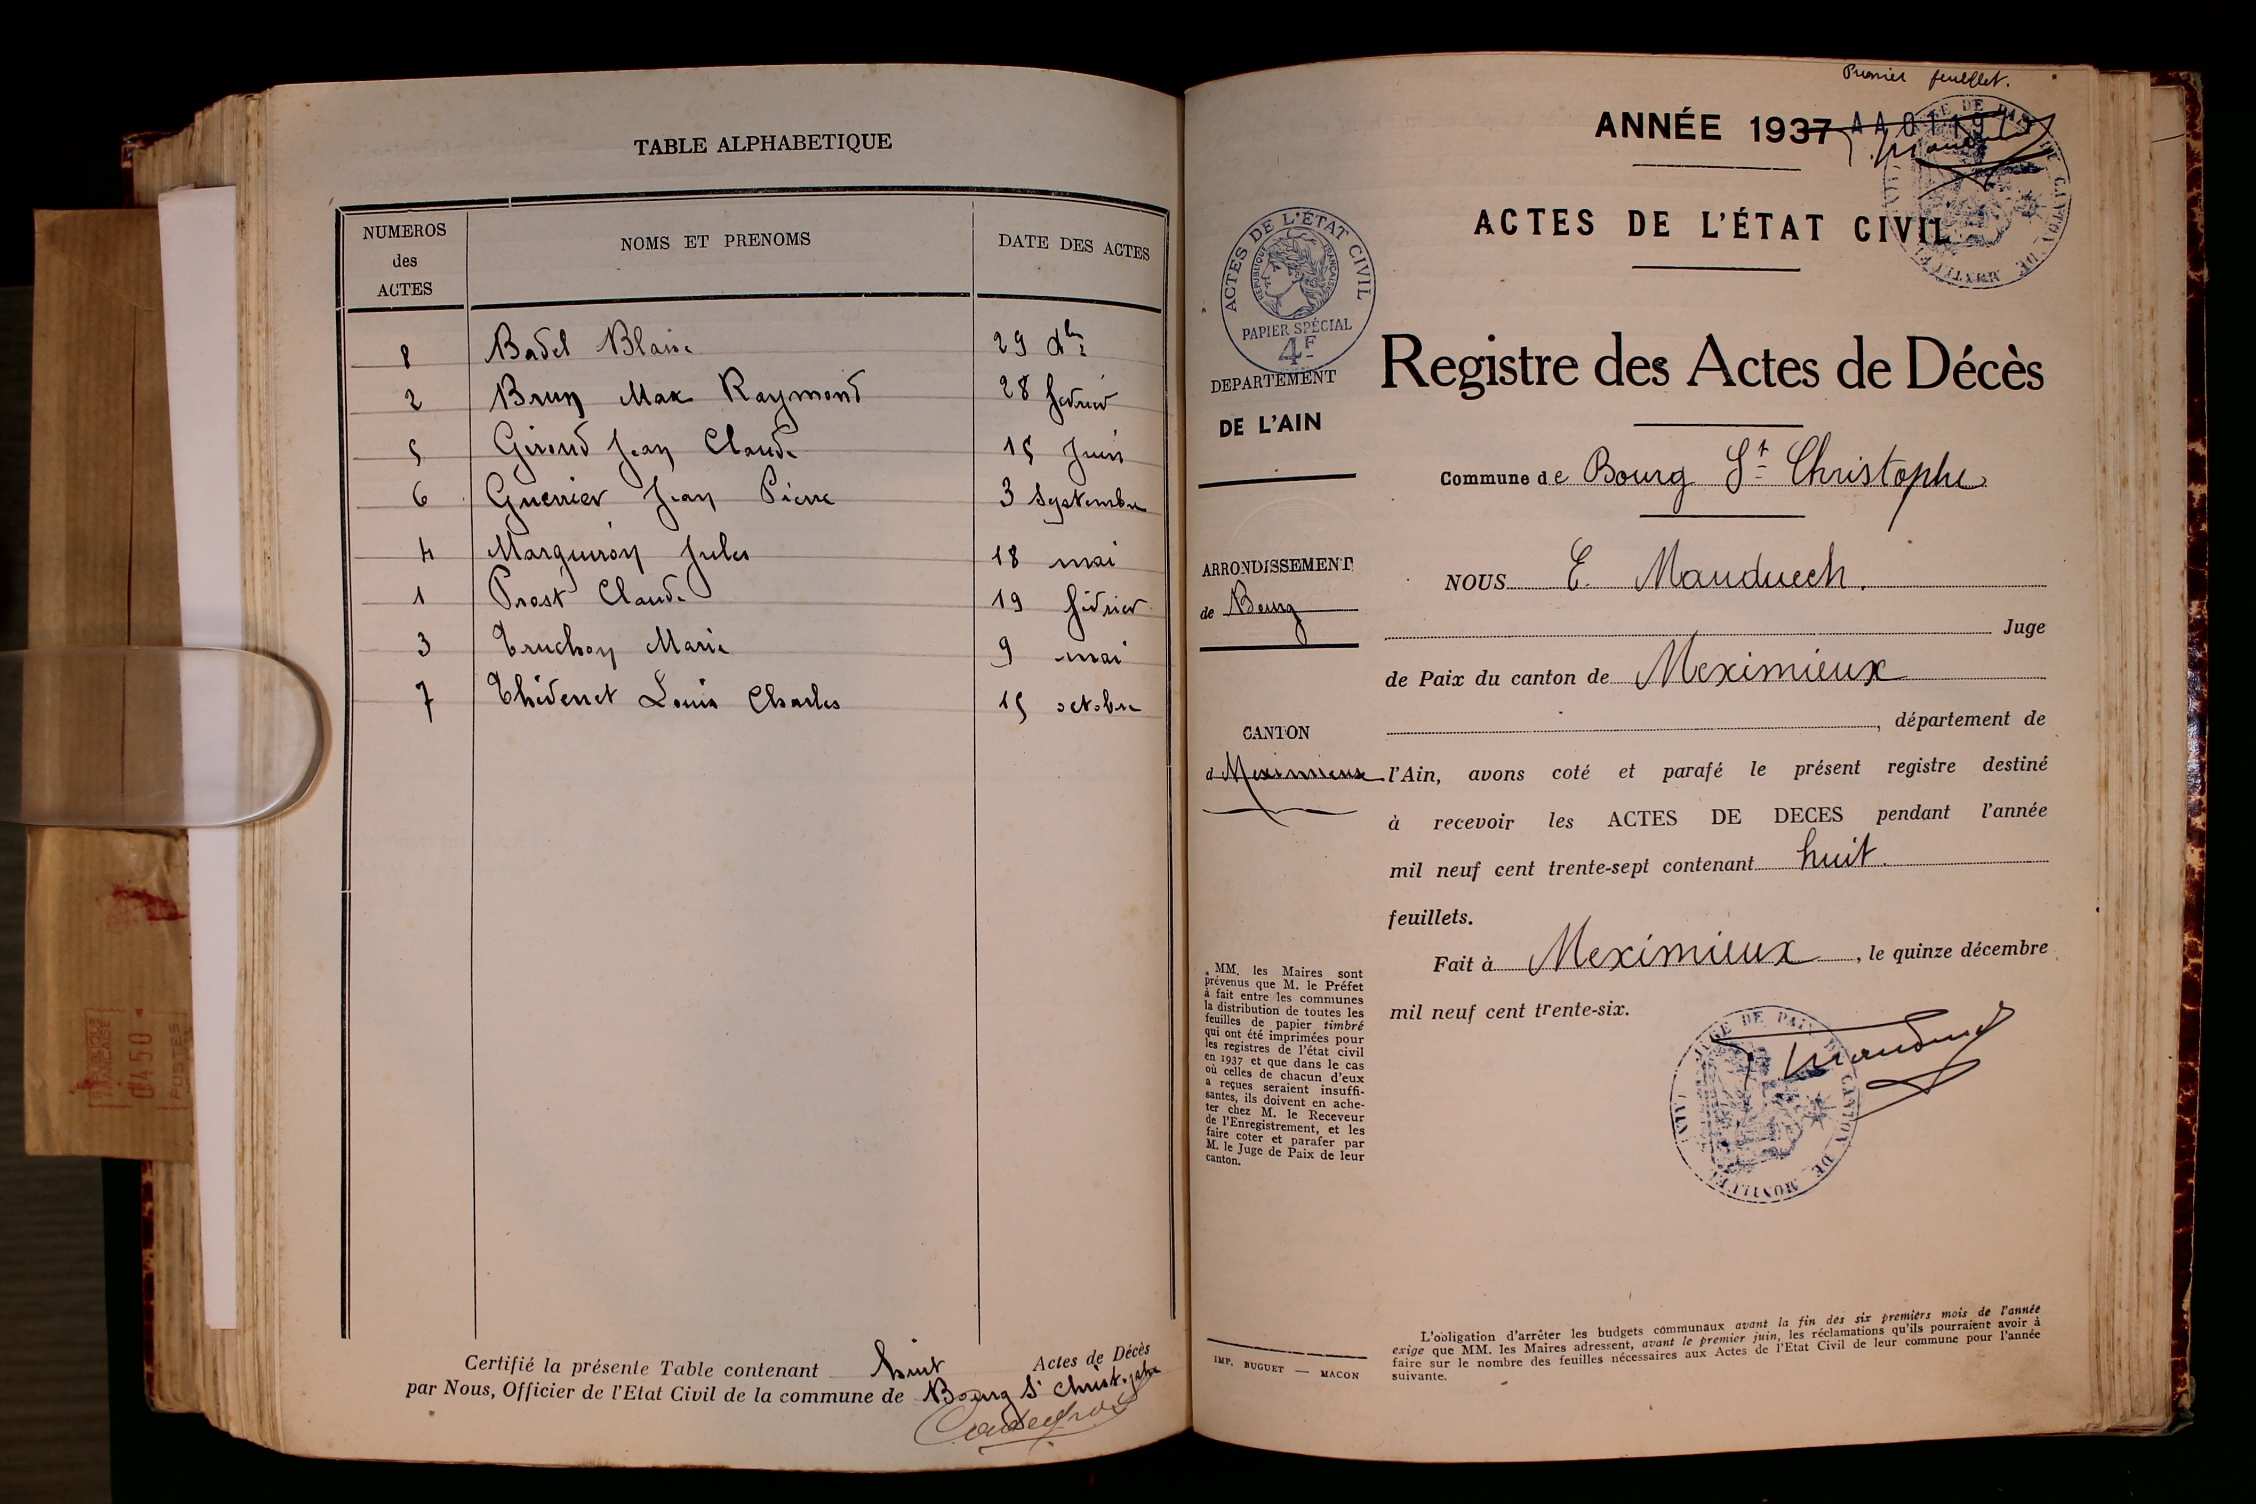 TABLE ALPHABETIQUE
NUMEROS des ACTES
NOMS ET PRENOMS
DATE DES ACTES
8 Badel Blaise 29 Xbre
2 Brun Max Raymond 28 février
5 Giroud Jean Claude 15 juin
6 Guerrier Jean Pierre 3 septembre
4 Marguiron Jules 18 mai
1 Prost Claude 19 février
3 Truchon Marie 9 mai
7 Thévenet Louis Charles 15 octobre
Certifié la présente Table contenant huit Actes de Décès
par Nous, Officier de l'Etat Civil de la commune de Bourg St Christophe
Premier feuillet.
ANNÉE 1937
ACTES DE L'ÉTAT CIVIL
ACTES DE L'ÉTAT CIVIL
REPUBLIQUE FRANÇAISE
PAPIER SPÉCIAL
4F
DEPARTEMENT
DE L'AIN
Registre des Actes de Décès
Commune de Bourg St Christophe
ARRONDISSEMENT
de Bourg
NOUS E. Mauduech.
Juge
de Paix du canton de Meximieux
, département de
CANTON
d Meximieux
l'Ain, avons coté et parafé le présent registre destiné
à recevoir les ACTES DE DECES pendant l'année
mil neuf cent trente-sept contenant huit
feuillets.
Fait à Meximieux, le quinze décembre
mil neuf cent trente-six.
JUGE DE PAIX DU CANTON DE MONTLUEL
MM. les Maires sont
prévenus que M. le Préfet
à fait entre les communes
la distribution de toutes les
feuilles de papier timbré
qui ont été imprimées pour
les registres de l'état civil
en 1937 et que dans le cas
où celles de chacun d'eux
a reçues seraient insuffi-
santes, ils doivent en ache-
ter chez M. le Receveur
de l'Enregistrement, et les
faire coter et parafer par
M. le Juge de Paix de leur
canton.
IMP. BUGUET — MACON
L'obligation d'arrêter les budgets communaux avant la fin des six premiers mois de l'année
exige que MM. les Maires adressent, avant le premier juin, les réclamations qu'ils pourraient avoir à
faire sur le nombre des feuilles nécessaires aux Actes de l'Etat Civil de leur commune pour l'année
suivante.
0450
POSTES